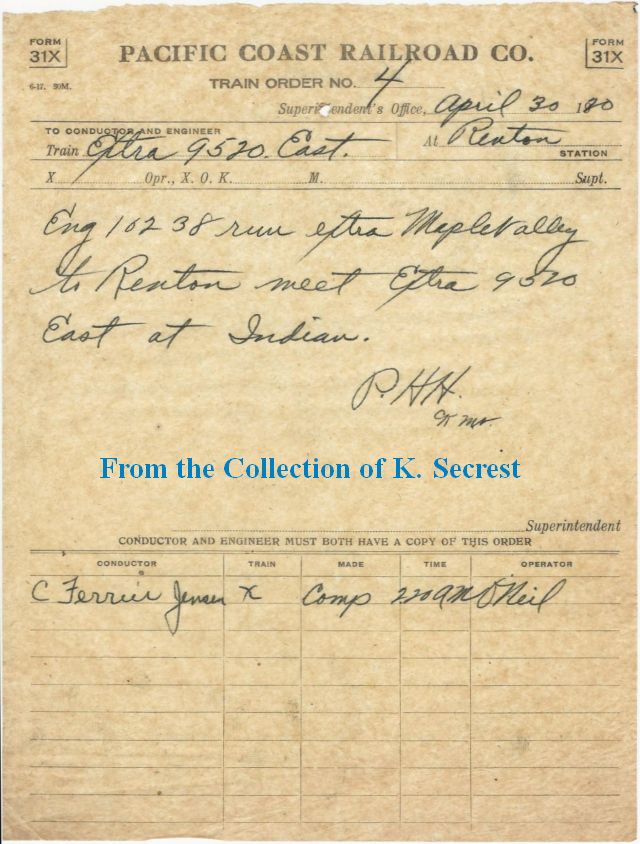 FORM 31X
PACIFIC COAST RAILROAD CO.
FORM 31X
6-17. 50M.
TRAIN ORDER NO. 4
Superintendent's Office, April 30 1
TO CONDUCTOR AND ENGINEER
Train Extra 9520. East. At Renton
STATION
X Opr., X. O. K. M. Supt.
Eng 10238 run extra Maple Valley
to Renton meet Extra 9520
East at Indian.
P.HH.
From the Collection of K. Secrest
Superintendent
CONDUCTOR AND ENGINEER MUST BOTH HAVE A COPY OF THIS ORDER
CONDUCTOR TRAIN MADE TIME OPERATOR
C Ferrier Jensen X Comp 220 AM O'Neil